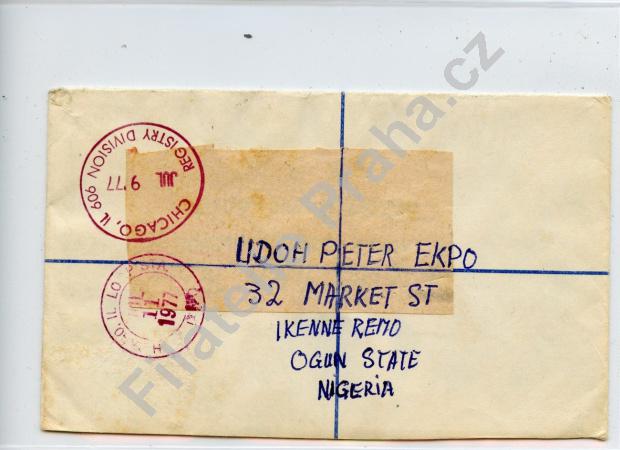 CHICAGO, IL 606
REGISTRY DIVISION
JUL 9 '77
JUL
11
1977
UDOH PETER EKPO
32 MARKET ST
IKENNE REMO
OGUN STATE
NIGERIA
Filatelie Praha.cz